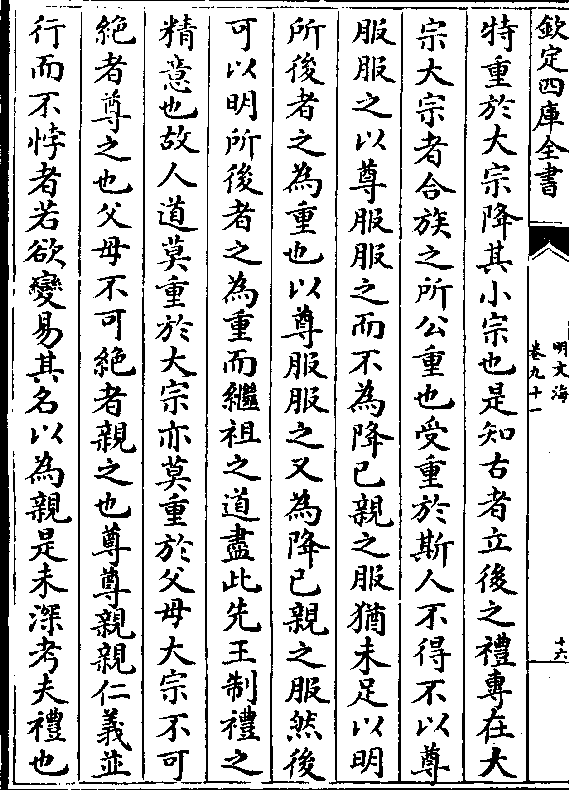 欽定四庫全書
明文海
卷九十一
十六
特重於大宗降其小宗也是知古者立後之禮專在大
宗大宗者合族之所公重也受重於斯人不得不以尊
服服之以尊服服之而不為降已親之服猶未足以明
所後者之為重也以尊服服之又為降已親之服然後
可以明所後者之為重而繼祖之道盡此先王制禮之
精意也故人道莫重於大宗亦莫重於父母大宗不可
絶者尊之也父母不可絶者親之也尊尊親親仁義並
行而不悖者若欲變易其名以為親是未深考夫禮也